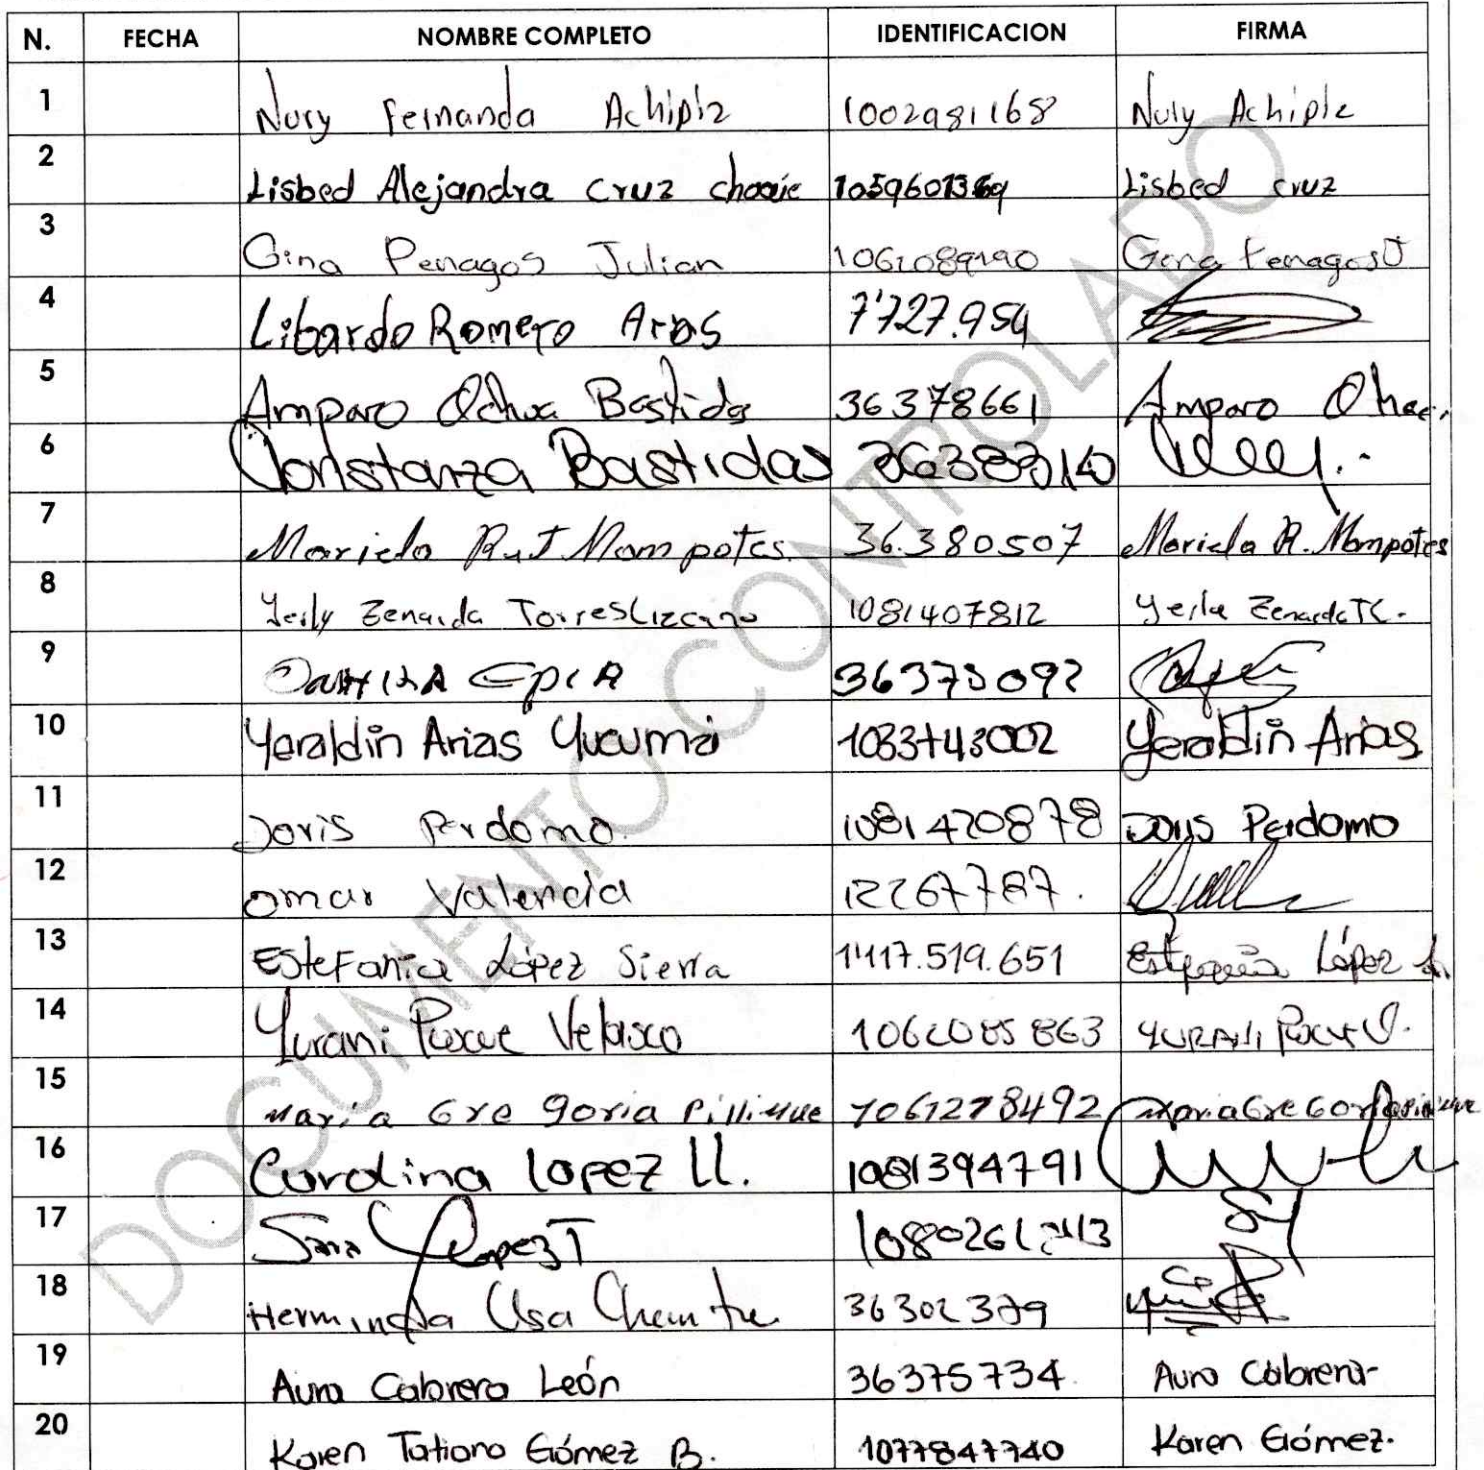 N. FECHA NOMBRE COMPLETO IDENTIFICACION FIRMA
1 Nury Fernanda Achipiz 1002981168 Nury Achipiz
2 Lisbed Alejandra Cruz 1059601369 Lisbed cruz
3 Gina Penagos Julian 1061089190 Gina Penagos J
4 Libardo Romero Arias 7'727.954
5 Amparo Ochoa Bastidas 36378661 Amparo
6 Constanza Bastidas 36383140
7 Mariela Rut Mampotes 36.380507 Mariela R. Mampotes
8 Yeily Zenaida Torres Lizcano 1081407812 Zenaida TL.
9 36373092
10 Yeraldin Arias Yucuma 1033743002 Yeraldin Arias
11 Doris Perdomo. 1081420878 Doris Perdomo
12 Omar Valencia 12267787.
13 Estefania López Sierra 1'117.519.651 Estefania López
14 Yurani Velasco 1062085863 YURANI
15 Maria Gregoria Pillimue 1061278492 Maria Gregoria
16 Carolina Lopez Ll. 1081394791
17 Sara Lopez T
18 Herminda Usa 36302379
19 Aura Cabrera León 36375734. Aura Cabrera
20 Karen Tatiana Gómez B. 1077847740 Karen Gómez.
DOCUMENTO CONTROLADO